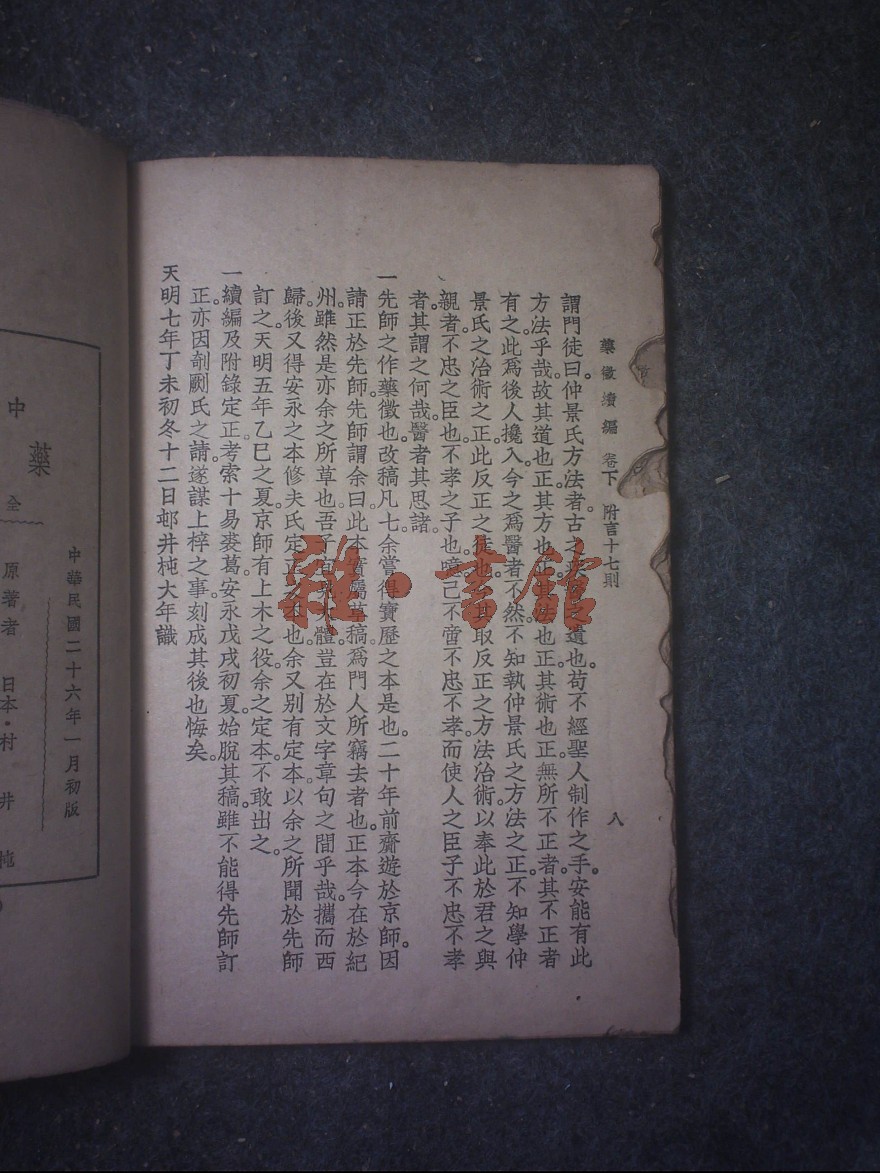 藥徵續編 卷下 附言十七則 八
謂門徒曰。仲景氏方法者。古之遺也。苟不經聖人制作之手。安能有此
方法乎哉。故其道也正。其方也正。其法也正。其術也正。無所不正者。其不正者
有之。此爲後人攙入。今之爲醫者不然。不知執仲景氏之方法之正。不知學仲
景氏之治術之正。此反正之徒也。其取反正之方法治術。以奉此於君之與
親者。不忠之臣也。不孝之子也。噫己不啻不忠不孝。而使人之臣子不忠不孝
者。其謂之何哉。醫者其思諸。
一先師之作藥徵也。改稿凡七。余嘗得寶歷之本是也。二十年前齋遊於京師。因
請正於先師。先師謂余曰。此本實屬草稿。爲門人所竊去者也。正本今在於紀
州。雖然是亦余之所草也。吾子大體。豈在於文字章句之間乎哉。攜而西
歸。後又得安永之本。修夫氏定正之本也。余又别有定本。以余之所聞於先師
訂之。天明五年乙巳之夏。京師有上木之役。余之定本。不敢出之。
一續編及附錄定正。考索十易裘葛。安永戊戌初夏。始脫其稿。雖不能得先師訂
正。亦因剞劂氏之請。遂謀上梓之事。刻成其後也悔矣。
天明七年丁未初冬十二日邨井杶大年識
中華民國二十六年一月初版
中
藥
全
原著者 日本·村井杶
雜·書館